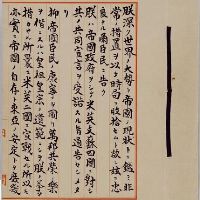 朕深ク世界ノ大勢ト帝國ノ現狀トニ鑑ミ非
常ノ措置ヲ以テ時局ヲ收拾セムト欲シ茲ニ忠
良ナル爾臣民ニ告ク
朕ハ帝國政府ヲシテ米英支蘇四國ニ對シ
其ノ共同宣言ヲ受諾スル旨通告セシメタリ
抑〻帝國臣民ノ康寧ヲ圖リ萬邦共榮ノ樂
ヲ偕ニスルハ皇祖皇宗ノ遺範ニシテ朕ノ拳々
措カサル所曩ニ米英二國ニ宣戰セル所以モ
亦實ニ帝國ノ自存ト東亞ノ安定トヲ庶幾